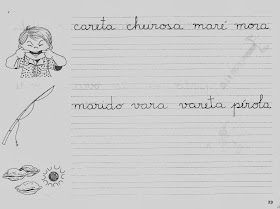 careta cheirosa maré mora
marido vara vareta pérola